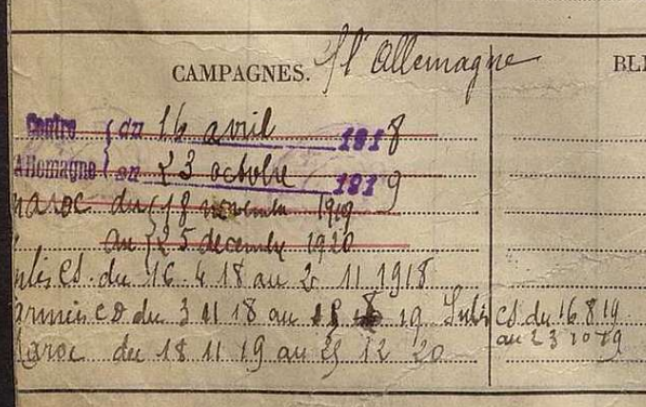 CAMPAGNES. C/ l'Allemagne
Contre { du 16 avril 1918
Allemagne { au 23 octobre 1919
maroc du { 18 novembre 1919
au { 25 décembre 1920
CS. du 16 4 18 au 2 11 1918
armées CD du 3 11 18 au 19 CS du 16 8 19
au 23 10 19
Maroc du 18 11 19 au 25 12 20